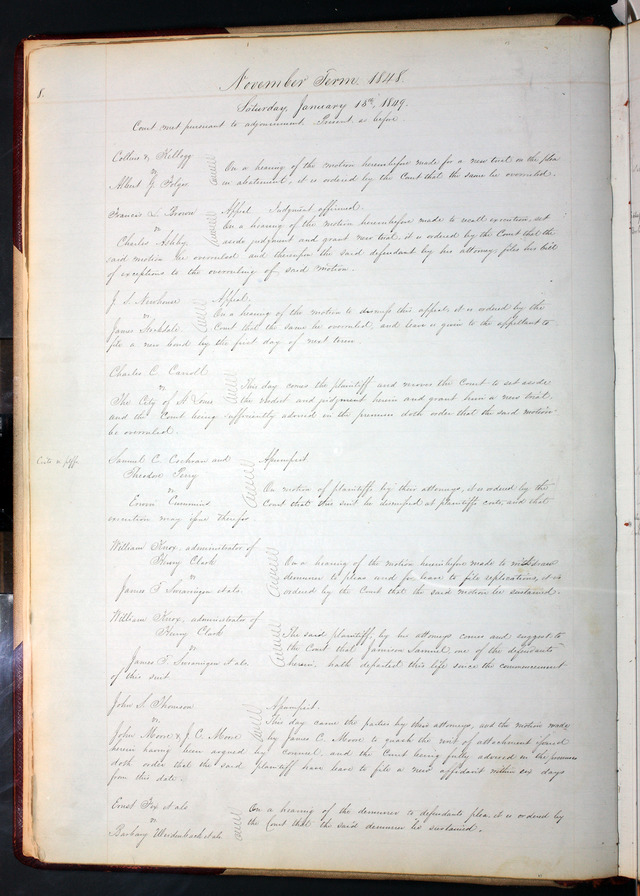 8.
November Term 1848
Saturday, January 13th, 1849.
Court met pursuant to adjournment. Present, as before
Collins & Kellogg
vs
Albert G. Folger
On a hearing of the motion hereinbefore made for a new trial on the plea
in abatement, it is ordered by the Court that the same be overruled.
Francis L. Brown
vs
Charles Ashby.
Appeal. Judgment affirmed.
On a hearing of the motion hereinbefore made to recall execution, set
aside judgment and grant new trial, it is ordered by the Court that the
said motion be overruled and thereupon the said defendant by his attorney, files his bill
of exceptions to the overruling of said motion.
J. S. Newhouse
vs
James
Appeal.
On a hearing of the motion to dismiss this appeal, it is ordered by the
Court that the same be overruled, and leave is given to the appellant to
file a new bond by the first day of next term.
Charles C. Carroll
vs
The City of St Louis
This day comes the plaintiff and moves the Court to set aside
the verdict and judgment herein and grant him a new trial,
and the Court being sufficiently advised in the premises doth order that the said motion
be overruled.
Costs vs plff.
Samuel C. Cochran and
Theodore Perry
vs
Erwin Cummins
Apumpsit
On motion of plaintiffs by their attorneys, it is ordered by the
Court that this suit be dismissed at plaintiffs costs, and that
execution may issue therefor
William Knox, administrator of
Henry Clark
vs
James T. Swearingen et als.
On a hearing of the motion hereinbefore made to withdraw
demurrer to pleas and for leave to file replications, it is
ordered by the Court that the said motion be sustained.
William Knox, administrator of
Henry Clark
vs
James T. Swearingen et als
The said plaintiff, by his attorneys comes and suggests to
the Court that Jamison Samuel, one of the defendants
herein, hath departed this life since the commencement
of this suit.
John S. Thomson
vs.
John Moore & J. C. Moore
Apumpsit.
This day came the parties by their attorneys, and the motion made
by James C. Moore to quash the writ of attachment issued
herein having been argued by counsel, and the Court being fully advised in the premises
doth order that the said plaintiff have leave to file a new affidavit within six days
from this date.
Ernst Fox et als
vs
Barbary Weidenback et als
On a hearing of the demurrer to defendants plea, it is ordered by
the Court that the said demurrer be sustained.